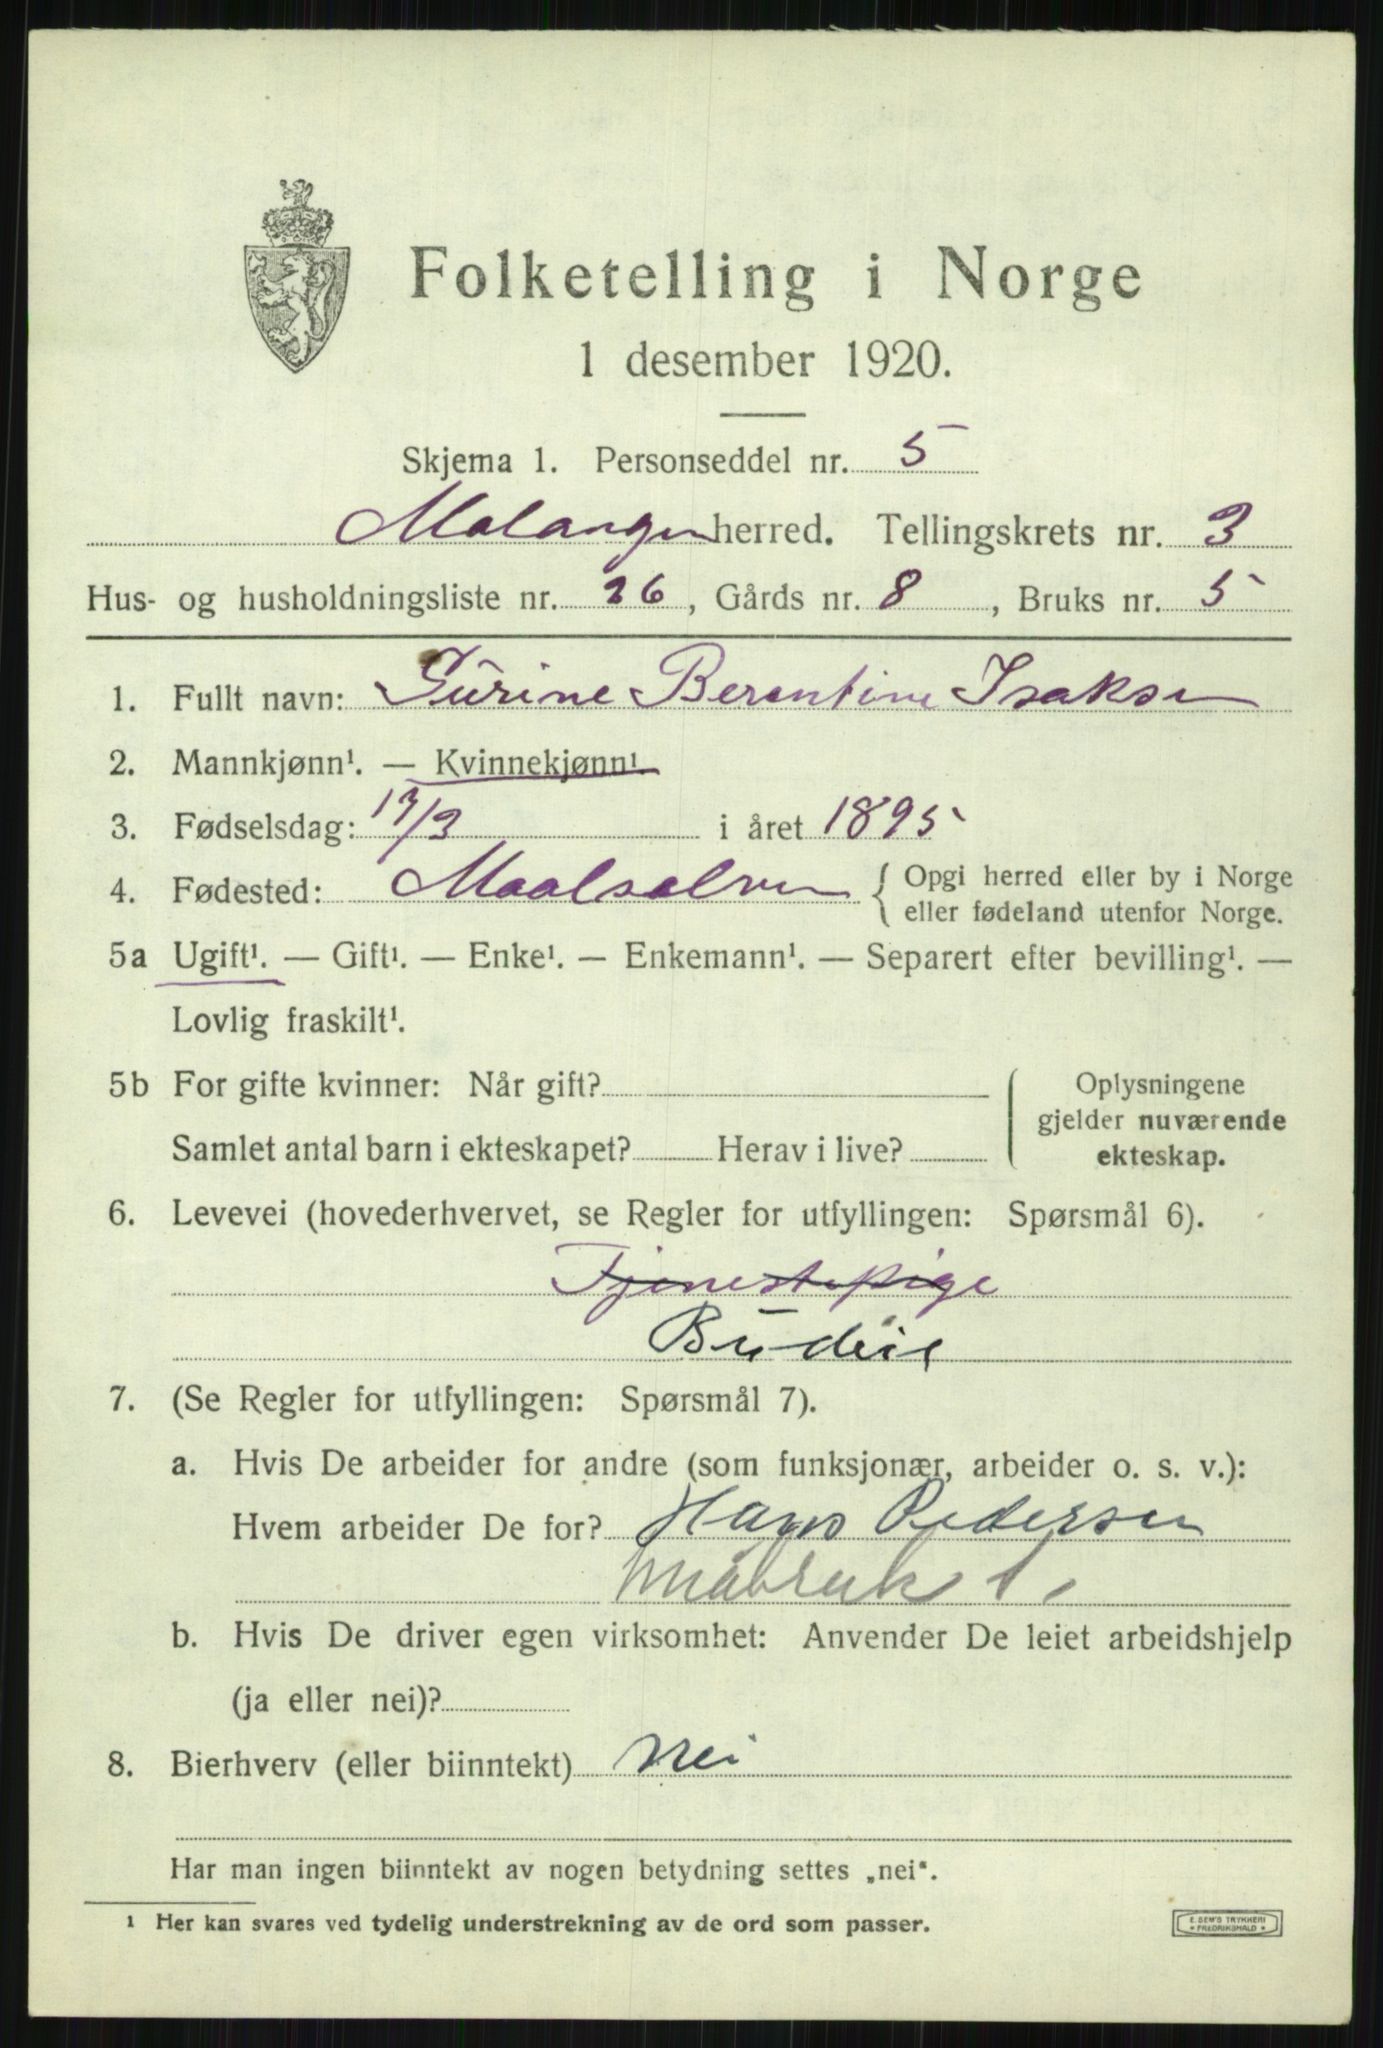 Folketelling i Norge
1 desember 1920.
Skjema 1. Personseddel nr. 5
Malangen herred. Tellingskrets nr. 3
Hus- og husholdningsliste nr. 26, Gårds nr. 8, Bruks nr. 5
1. Fullt navn: Gurine Berentine Isaksen
2. Mannkjønn¹. — Kvinnekjønn¹
3. Fødselsdag: 17/3 i året 1895
4. Fødested: Maalselven { Opgi herred eller by i Norge
eller fødeland utenfor Norge.
5a Ugift¹. — Gift¹. — Enke¹. — Enkemann¹. — Separert efter bevilling¹. —
Lovlig fraskilt¹.
5b For gifte kvinner: Når gift? Oplysningene
gjelder nuværende
Samlet antal barn i ekteskapet? Herav i live? ekteskap.
6. Levevei (hovederhvervet, se Regler for utfyllingen: Spørsmål 6).
Tjenestepige
Budeie
7. (Se Regler for utfyllingen: Spørsmål 7).
a. Hvis De arbeider for andre (som funksjonær, arbeider o. s. v.):
Hvem arbeider De for? Hans Pedersen
Småbruk 1.
b. Hvis De driver egen virksomhet: Anvender De leiet arbeidshjelp
(ja eller nei)?
8. Bierhverv (eller biinntekt) Nei
Har man ingen biinntekt av nogen betydning settes „nei“.
¹ Her kan svares ved tydelig understrekning av de ord som passer.
E. SEM'S TRYKKERI
* FREDRIKSHALD *